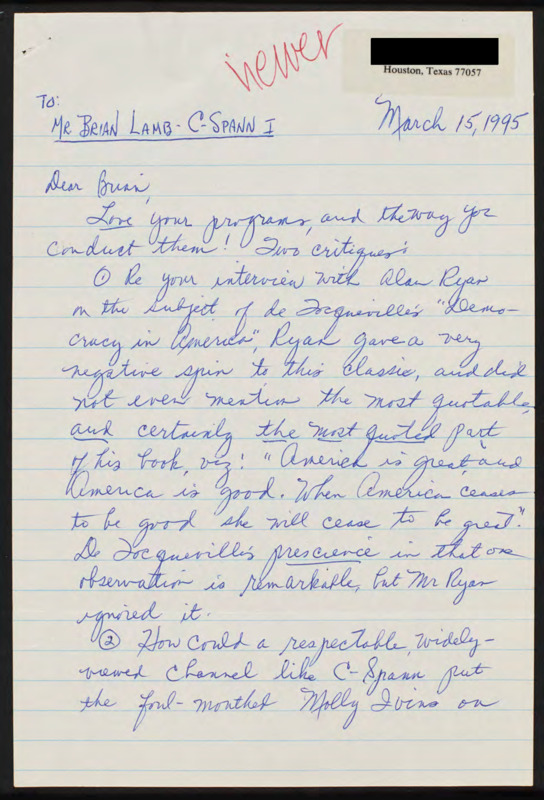 newer
Houston, Texas 77057
TO:
MR BRIAN LAMB - C-SPANN I
March 15, 1995
Dear Brian,
Love your programs, and the way you
conduct them! Two critiques:
① Re your interview with Alan Ryan
on the subject of de Tocqueville's "Demo-
cracy in America", Ryan gave a very
negative spin to this classic, and did
not even mention the most quotable,
and certainly the most quoted part
of his book, viz: "America is great, and
America is good. When America ceases
to be good she will cease to be great."
De Tocqueville's prescience in that one
observation is remarkable, but Mr Ryan
ignored it.
② How could a respectable, widely-
viewed channel like C-Spann put
the foul-mouthed Molly Ivins on